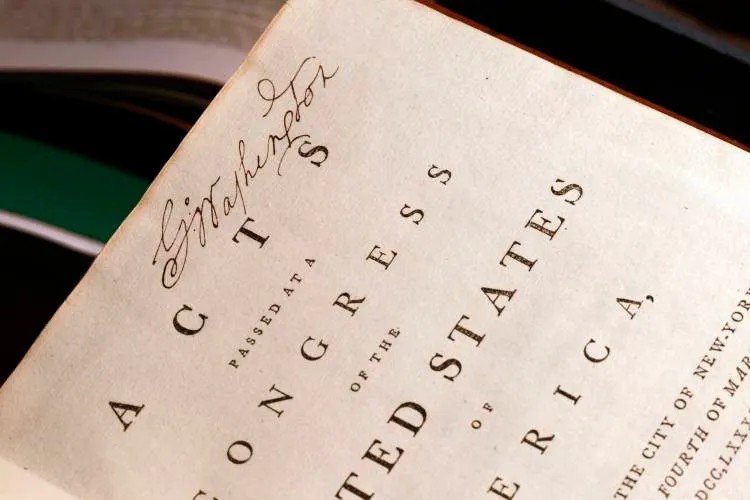 Go: Washington
ACTS
PASSED AT A
CONGRESS
OF THE
UNITED STATES
OF
AMERICA,
THE CITY OF NEW-YORK
FOURTH OF MAR
DCC,LXXX